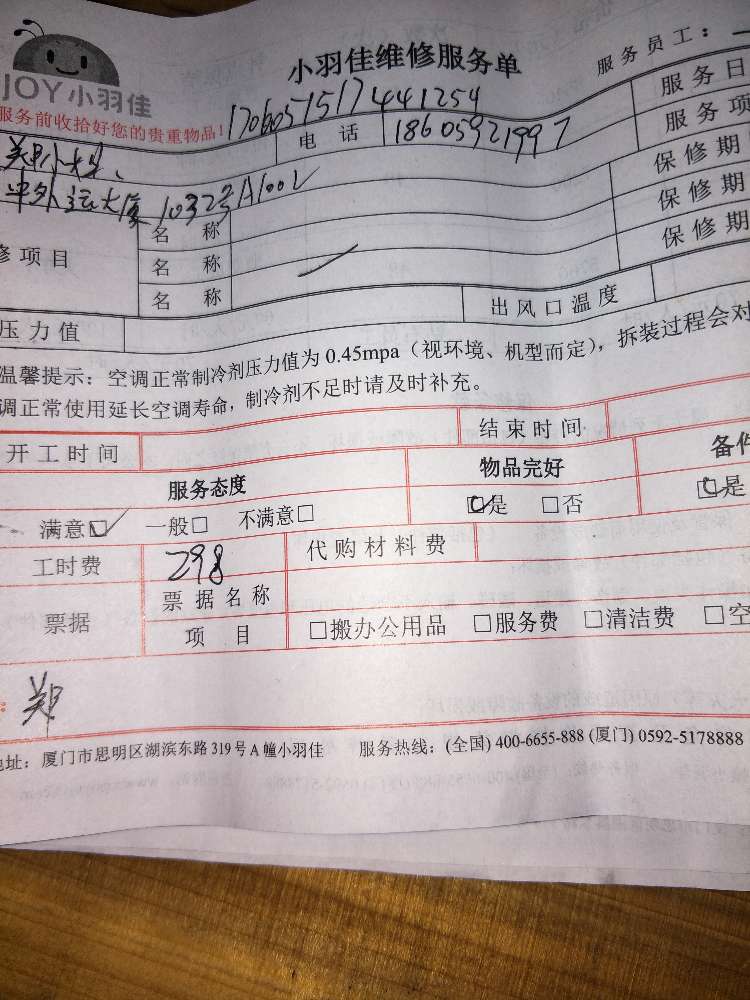 小羽佳维修服务单
服务员工：
JOY小羽佳
服务前收拾好您的贵重物品！
1706051517441254
服务日
电 话 18605921997
服务项
郑小姐
中外运大厦 1032号A1002
保修期
名 称
保修期
修项目
名 称
保修期
名 称
压力值
出风口温度
温馨提示：空调正常制冷剂压力值为 0.45mpa（视环境、机型而定），拆装过程会对
调正常使用延长空调寿命，制冷剂不足时请及时补充。
开工时间
结束时间
服务态度
物品完好
备件
满意☑ 一般□ 不满意□
☑是 □否
☑是
工时费 298
代购材料费
票据
票据名称
项 目
□搬办公用品 □服务费 □清洁费 □空
郑
地址：厦门市思明区湖滨东路 319 号 A 幢小羽佳 服务热线：(全国) 400-6655-888 (厦门) 0592-5178888